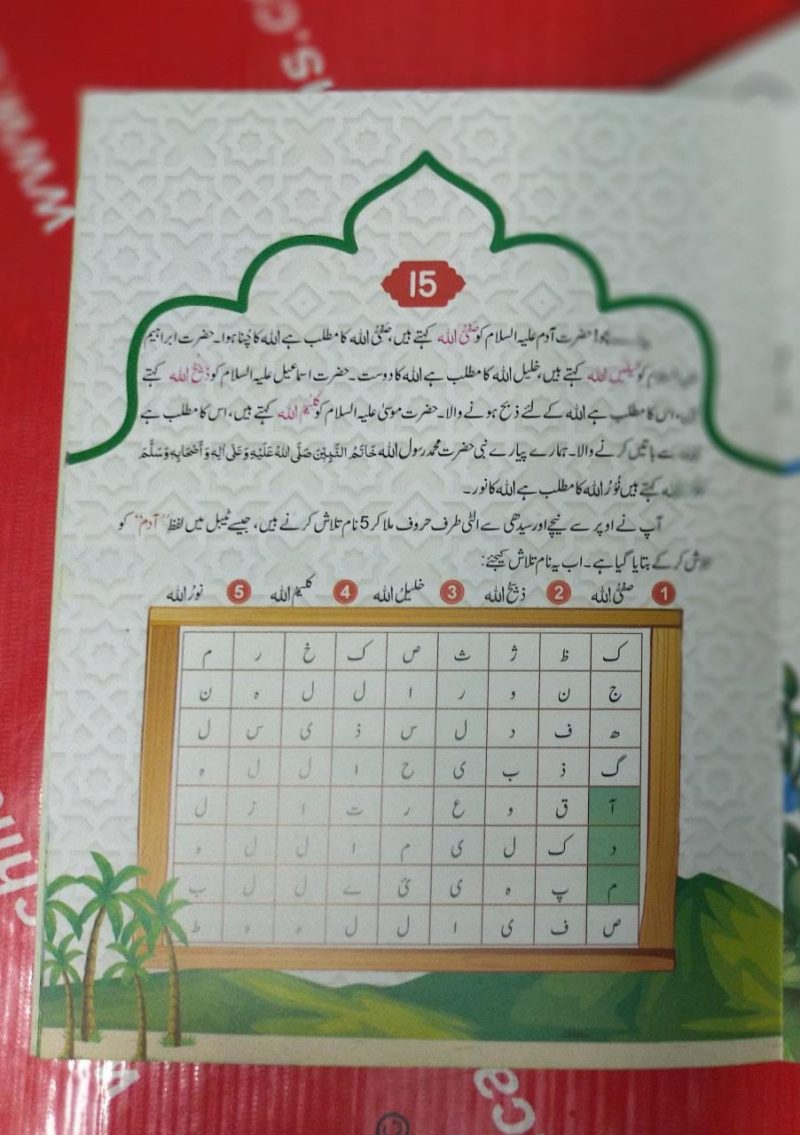 www.
s.c
15
بچو! حضرت آدم علیہ السلام کو صفیُّ اللہ کہتے ہیں، صفیُّ اللہ کا مطلب ہے اللہ کا چُنا ہوا۔ حضرت ابراہیم
السلام کو خلیلُ اللہ کہتے ہیں، خلیل اللہ کا مطلب ہے اللہ کا دوست۔ حضرت اسماعیل علیہ السلام کو ذبیحُ اللہ کہتے
ہیں، اس کا مطلب ہے اللہ کے لئے ذبح ہونے والا۔ حضرت موسیٰ علیہ السلام کو کلیمُ اللہ کہتے ہیں، اس کا مطلب ہے
اللہ سے باتیں کرنے والا۔ ہمارے پیارے نبی حضرت محمد رسول اللہ خَاتَمُ النَّبِیّٖن صَلَّی اللہُ عَلَیْہِ وَعَلٰی اٰلِہٖ وَ اَصْحَابِہٖ وَسَلَّمَ
کہتے ہیں نُورُ اللہ کا مطلب ہے اللہ کا نور۔
آپ نے اوپر سے نیچے اور سیدھی سے الٹی طرف حروف ملا کر 5 نام تلاش کرنے ہیں، جیسے ٹیبل میں لفظ "آدم" کو
تلاش کر کے بتایا گیا ہے۔ اب یہ نام تلاش کیجئے:
1 صفیُّ اللہ 2 ذبیحُ اللہ 3 خلیلُ اللہ 4 کلیمُ اللہ 5 نورُ اللہ
ک ظ ژ ث ص ک خ ر م
ج ن و ر ا ل ل ہ ن
ھ ف د ل س ذ ی س ل
گ ذ ب ی ح ا ل ل ہ
آ ق و ع ر ت ا ز ل
د ک ل ی م ا ل ل ہ
م پ ہ ی ئ ے ل ل ب
ص ف ی ا ل ل ہ ہ ط